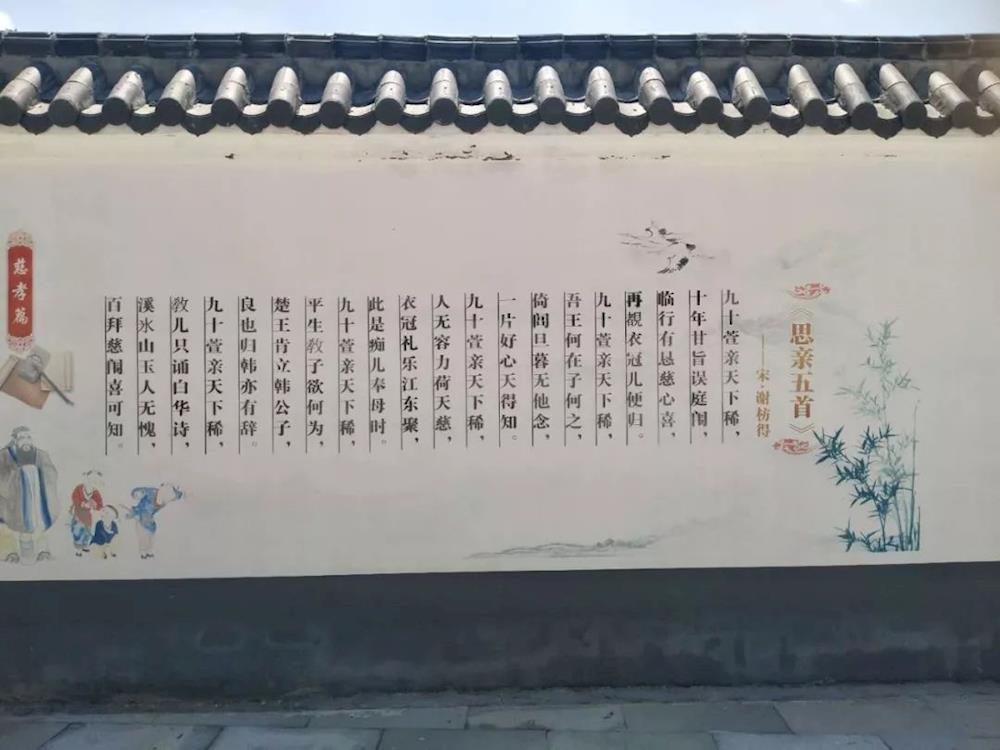 《思亲五首》
——宋·谢枋得
九十萱亲天下稀，
十年甘旨误庭闱，
临行有恳慈心喜，
再觐衣冠儿便归。
九十萱亲天下稀，
吾王何在子何之，
倚闾旦暮无他念，
一片好心天得知。
九十萱亲天下稀，
人无容力荷天慈，
衣冠礼乐江东聚，
此是痴儿奉母时。
九十萱亲天下稀，
平生教子欲何为，
楚王肯立韩公子，
良也归韩亦有辞。
九十萱亲天下稀，
教儿只诵白华诗，
溪冰山玉人无愧，
百拜慈闱喜可知。
慈孝篇